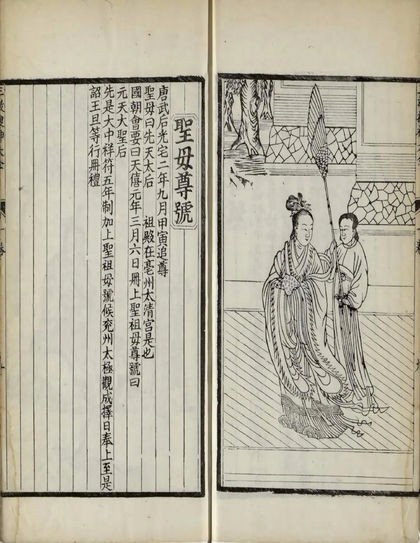 聖母尊號
唐武后光宅二年九月甲寅追尊
聖母曰先天太后　祖殿在亳州太清宮是也
國朝會要曰天僖元年三月六日冊上聖祖母尊號曰
元天大聖后
先是大中祥符五年制加上聖祖母號候兖州太極觀成擇日奉上至是
詔王旦等行冊禮